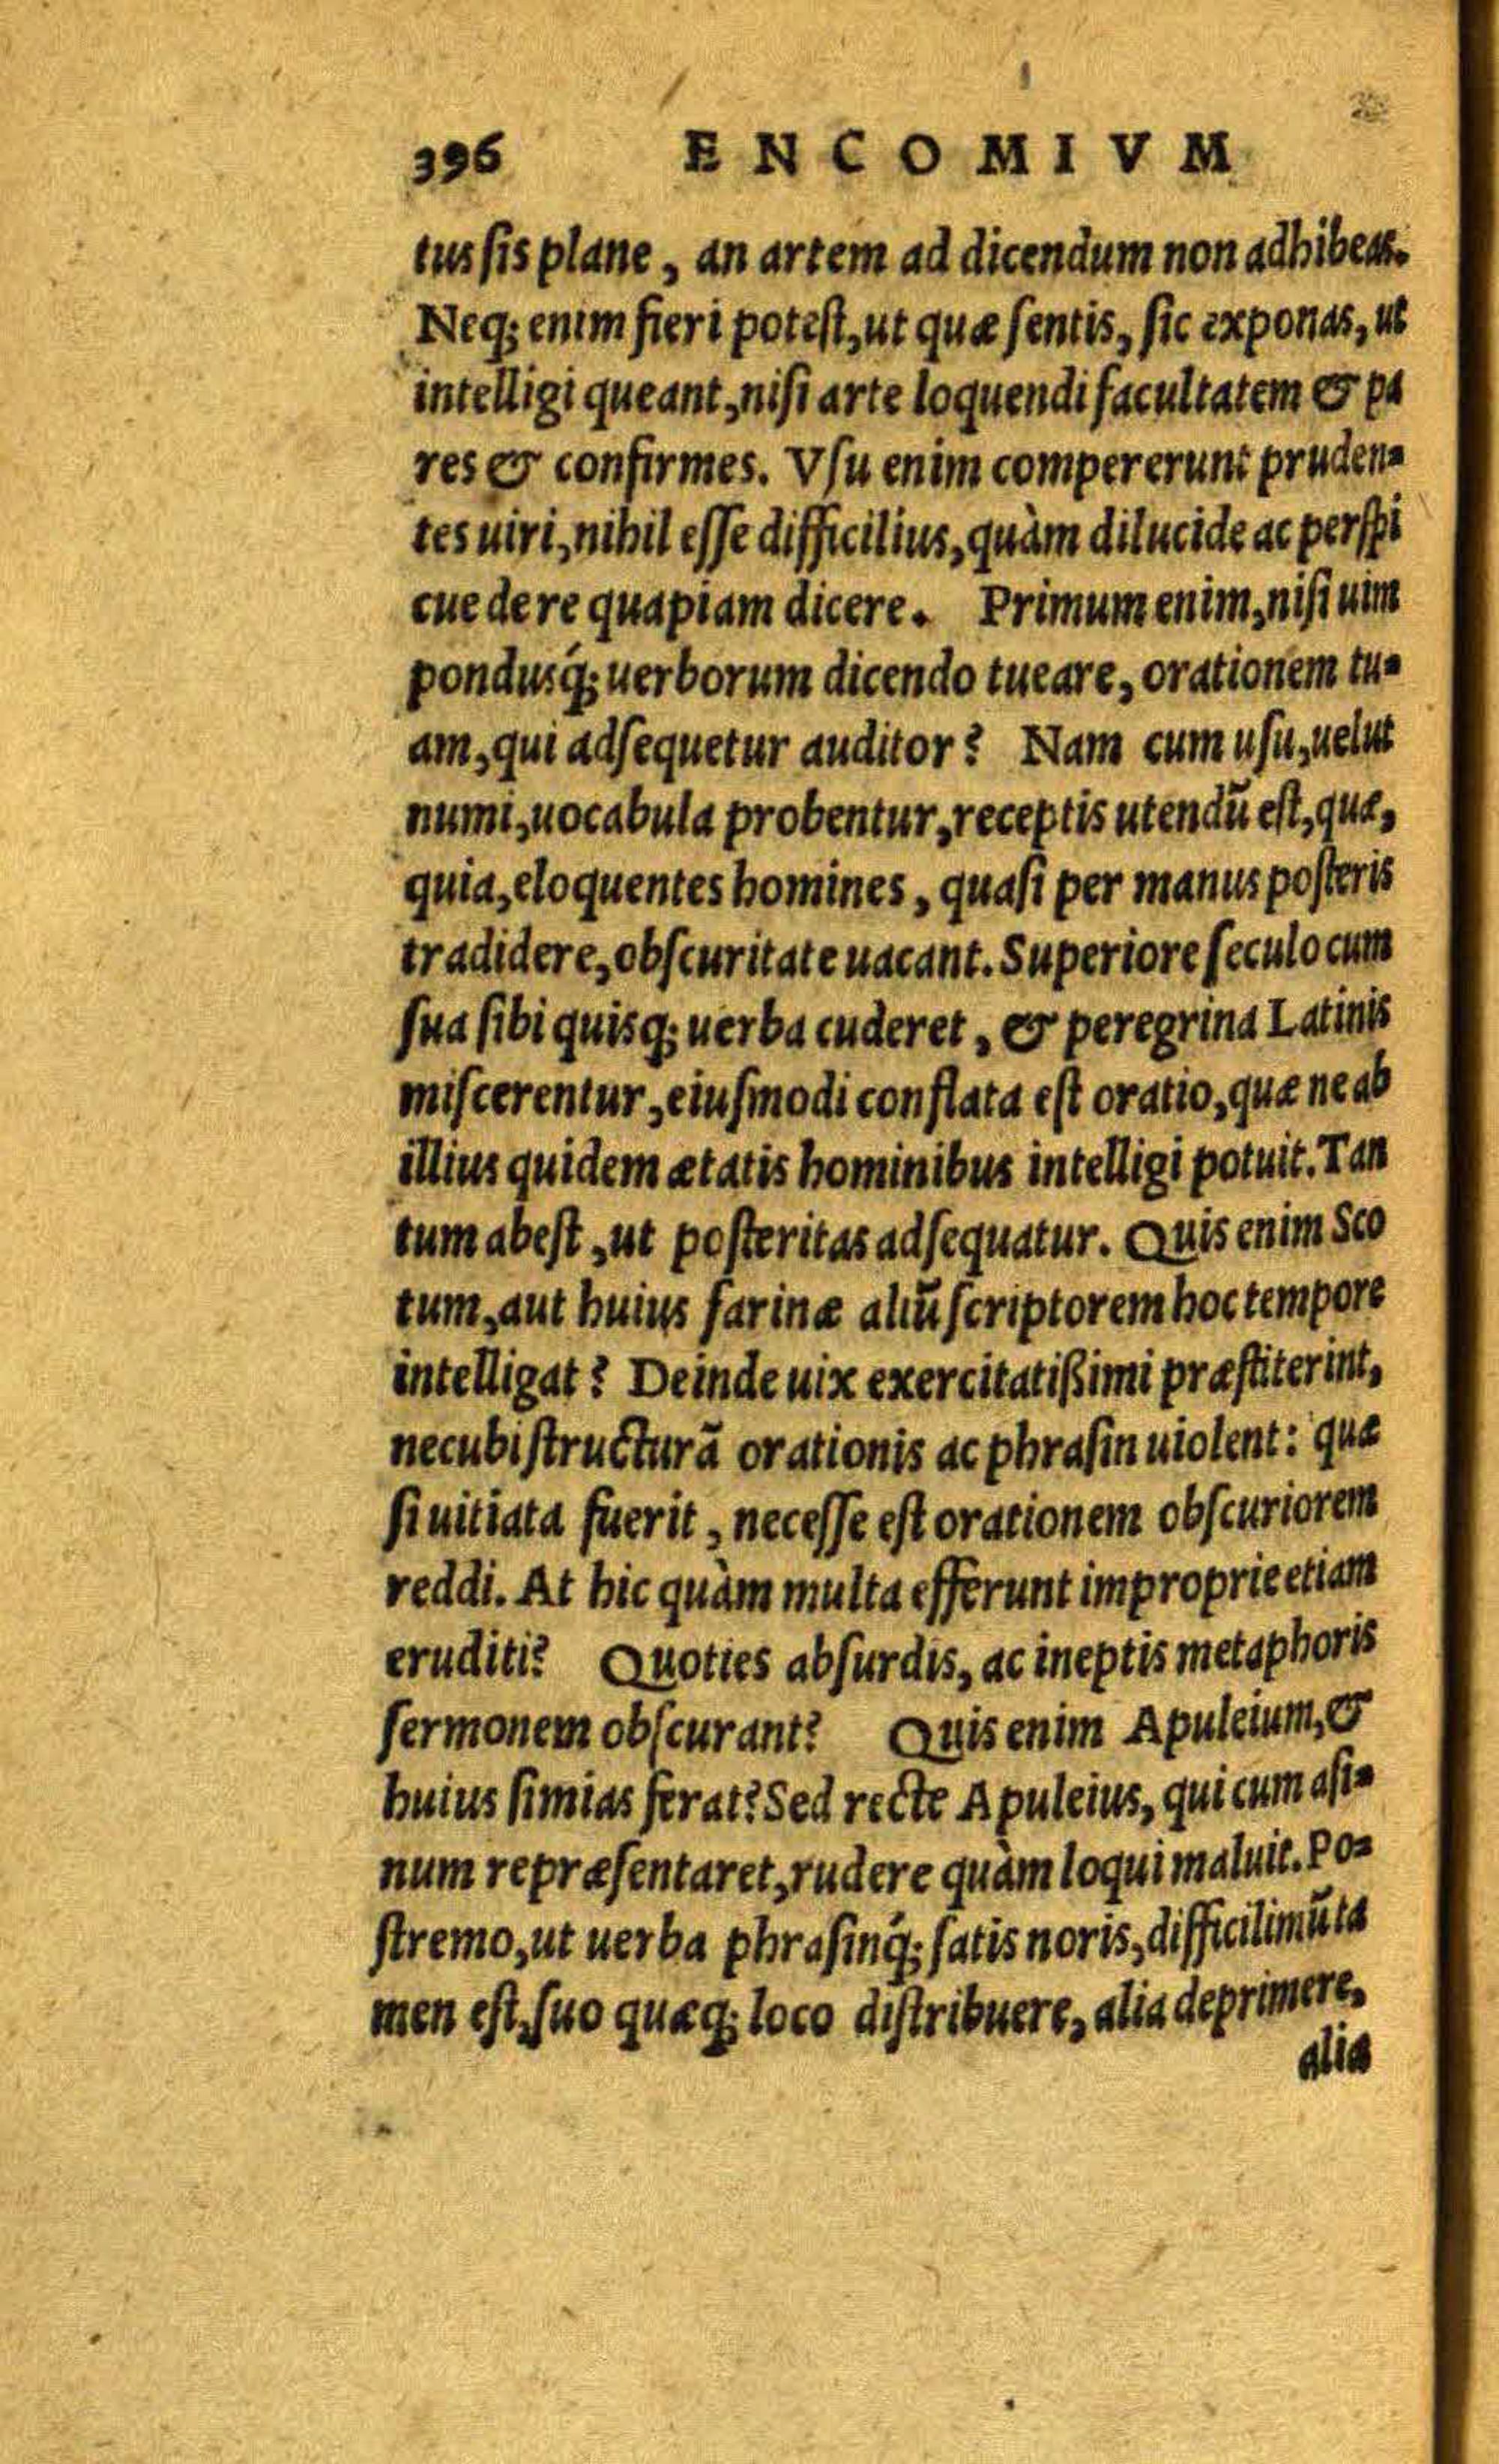 396 ENCOMIVM
tus sis plane, an artem ad dicendum non adhibeas.
Neq; enim fieri potest, ut quæ sentis, sic exponas, ut
intelligi queant, nisi arte loquendi facultatem & pa
res & confirmes. Vsu enim compererunt pruden-
tes uiri, nihil esse difficilius, quàm dilucide ac perspi
cue de re quapiam dicere. Primum enim, nisi uim
pondusq́; uerborum dicendo tueare, orationem tu-
am, qui adsequetur auditor? Nam cum usu, uelut
numi, uocabula probentur, receptis utendū est, quæ,
quia, eloquentes homines, quasi per manus posteris
tradidere, obscuritate uacant. Superiore seculo cum
sua sibi quisq; uerba cuderet, & peregrina Latinis
miscerentur, eiusmodi conflata est oratio, quæ ne ab
illius quidem ætatis hominibus intelligi potuit. Tan
tum abest, ut posteritas adsequatur. Quis enim Sco
tum, aut huius farinæ aliū scriptorem hoc tempore
intelligat? Deinde uix exercitatißimi præstiterint,
necubi structurā orationis ac phrasin uiolent: quæ
si uitiata fuerit, necesse est orationem obscuriorem
reddi. At hic quàm multa efferunt improprie etiam
eruditi? Quoties absurdis, ac ineptis metaphoris
sermonem obscurant? Quis enim Apuleium, &
huius simias ferat? Sed recte Apuleius, qui cum asi-
num repræsentaret, rudere quàm loqui maluit. Po-
stremo, ut uerba phrasinq́; satis noris, difficilimū ta
men est, suo quæq; loco distribuere, alia deprimere,
alia